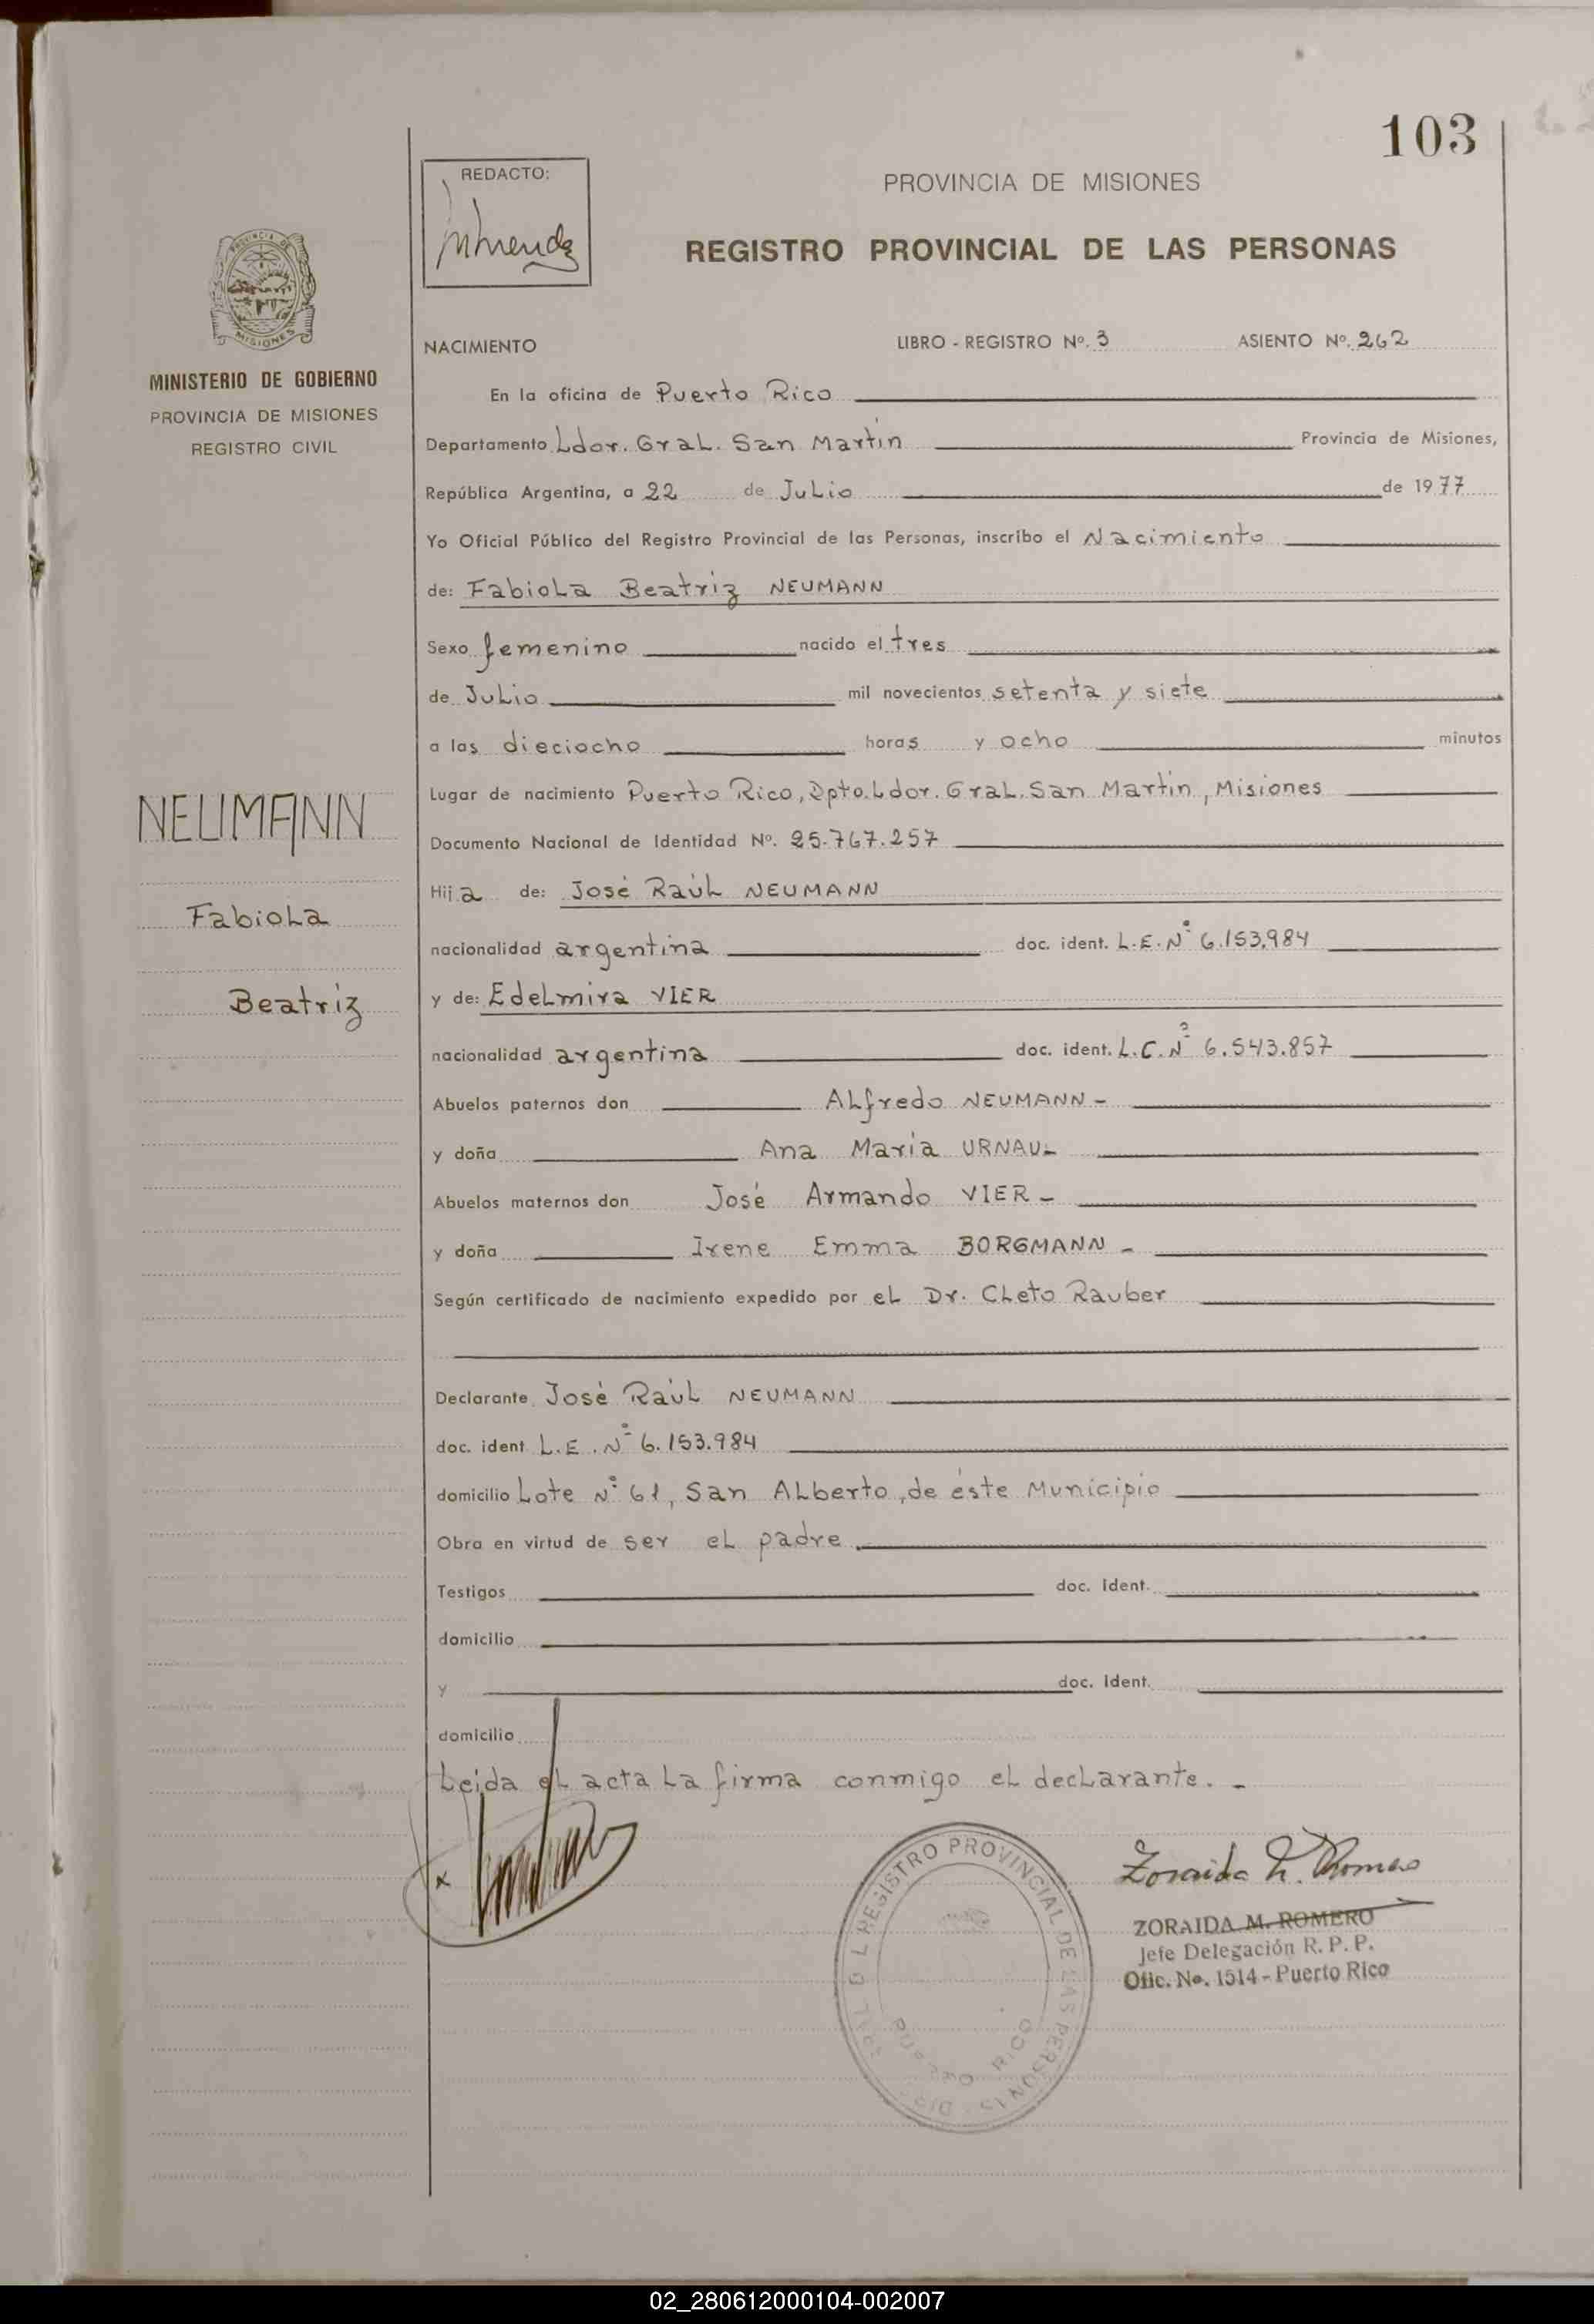 103
REDACTO:
PROVINCIA DE MISIONES
REGISTRO PROVINCIAL DE LAS PERSONAS
PROVINCIA DE
MISIONES
MINISTERIO DE GOBIERNO
PROVINCIA DE MISIONES
REGISTRO CIVIL
NEUMANN
Fabiola
Beatriz
NACIMIENTO LIBRO - REGISTRO Nº. 3 ASIENTO Nº. 262
En la oficina de Puerto Rico
Departamento Ldor. Gral. San Martín Provincia de Misiones,
República Argentina, a 22 de Julio de 1977
Yo Oficial Público del Registro Provincial de las Personas, inscribo el Nacimiento
de: Fabiola Beatriz NEUMANN
Sexo femenino nacido el tres
de Julio mil novecientos setenta y siete
a las dieciocho horas y ocho minutos
Lugar de nacimiento Puerto Rico, Dpto. Ldor. Gral. San Martín, Misiones
Documento Nacional de Identidad Nº. 25.767.257
Hija de: José Raúl NEUMANN
nacionalidad argentina doc. ident. L.E. Nº 6.153.984
y de: Edelmira VIER
nacionalidad argentina doc. ident. L.C. Nº 6.543.857
Abuelos paternos don Alfredo NEUMANN -
y doña Ana María URNAU -
Abuelos maternos don José Armando VIER -
y doña Irene Emma BORGMANN -
Según certificado de nacimiento expedido por el Dr. Cleto Rauber
Declarante José Raúl NEUMANN
doc. ident L.E. Nº 6.153.984
domicilio Lote Nº 61, San Alberto, de éste Municipio
Obra en virtud de ser el padre.
Testigos doc. Ident.
domicilio
y doc. Ident.
domicilio
Leida el acta la firma conmigo el declarante. -
x
REGISTRO PROVINCIAL DE LAS PERSONAS
PUERTO RICO
Zoraida M. Romero
ZORAIDA M. ROMERO
Jefe Delegación R. P. P.
Ofic. No. 1514 - Puerto Rico
02_280612000104-002007